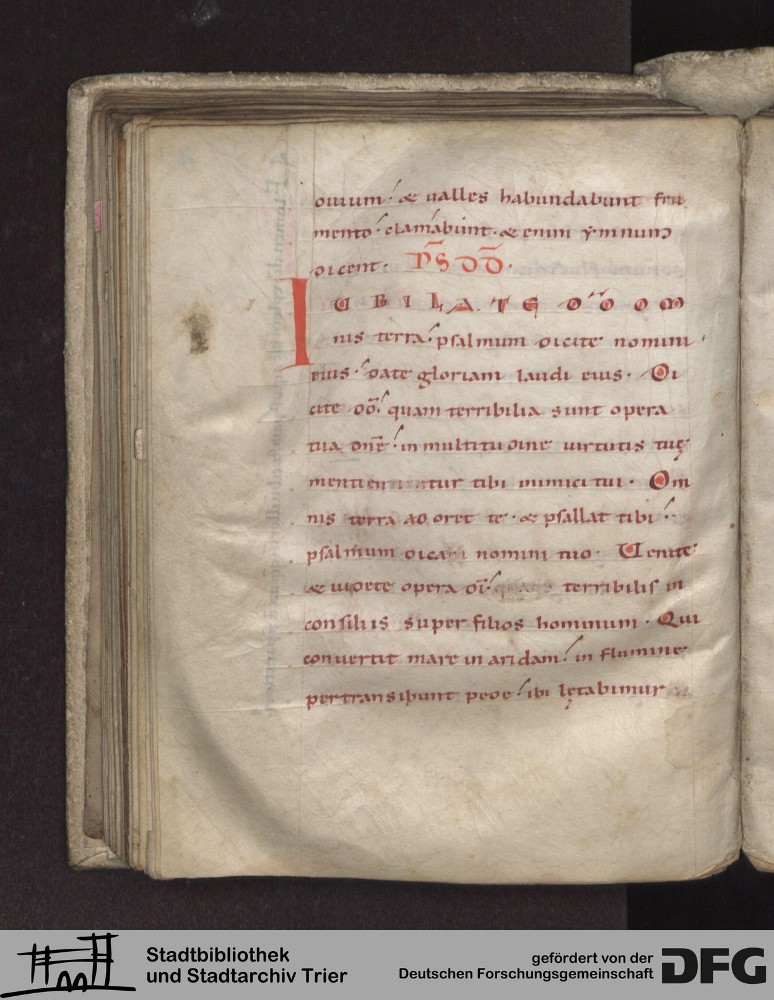 ouium· & ualles habundabunt fru
mento· clamabunt· & enim ymnum
dicent· PS DD·
IUBILATE DŌ OM
nis terra· psalmum dicite nomini
eius· date gloriam laudi eius· Di
cite dō· quam terribilia sunt opera
tua dnē· in multitudine uirtutis tuę
mentientur tibi inimici tui· Om
nis terra adoret te· & psallat tibi·
psalmum dicat nomini tuo· Uenite
& uidete opera dī· terribilis in
consiliis super filios hominum· Qui
conuertit mare in aridam· in flumine
pertransibunt pede· ibi lętabimur
Stadtbibliothek
und Stadtarchiv Trier
gefördert von der
Deutschen Forschungsgemeinschaft
DFG